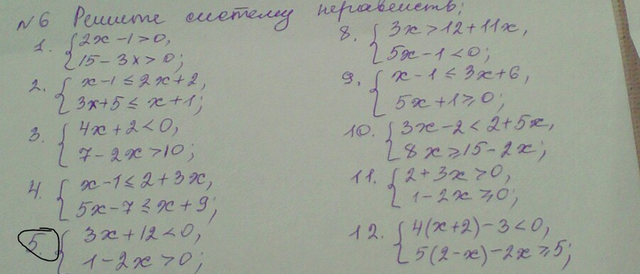 №6 Решите систему неравенств;
1. { 2x-1>0,
15-3x>0;
2. { x-1≤2x+2,
3x+5≤x+1;
3. { 4x+2<0,
7-2x>10;
4. { x-1≤2+3x,
5x-7≤x+9;
5 { 3x+12<0,
1-2x>0;
8. { 3x>12+11x,
5x-1<0;
9. { x-1≤3x+6,
5x+1≥0;
10. { 3x-2<2+5x,
8x≥15-2x;
11. { 2+3x>0,
1-2x≥0;
12. { 4(x+2)-3<0,
5(2-x)-2x≥5;